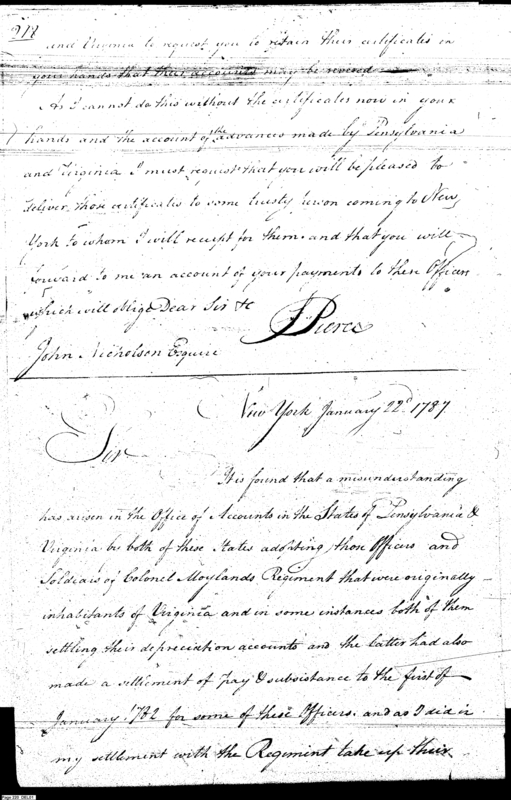 218
and Virginia to request you to retain their certificates in
your hands that their accounts may be revered
As I cannot do this without the certificates now in your
hands and the account of the advances made by Pensylvania
and Virginia I must request that you will be pleased to
deliver those certificates to some trusty person coming to New
York to whom I will receipt for them. and that you will
forward to me an account of your payments to these Officers
which will oblige Dear Sir &c
J Pierce
John Nicholson Esquire
New York January 22d. 1787
Sir
It is found that a misunderstanding
has arisen in the Office of Accounts in the States of Pensylvania &
Virginia by both of these States adopting those Officers and
Soldiers of Colonel Moylands Regiment that were originally
inhabitants of Virginia and in some instances both of them
settling their depreciation accounts and the latter had also
made a settlement of pay & subsistance to the first of
January 1782 for some of these Officers. and as I did in
my settlement with the Regiment take up their